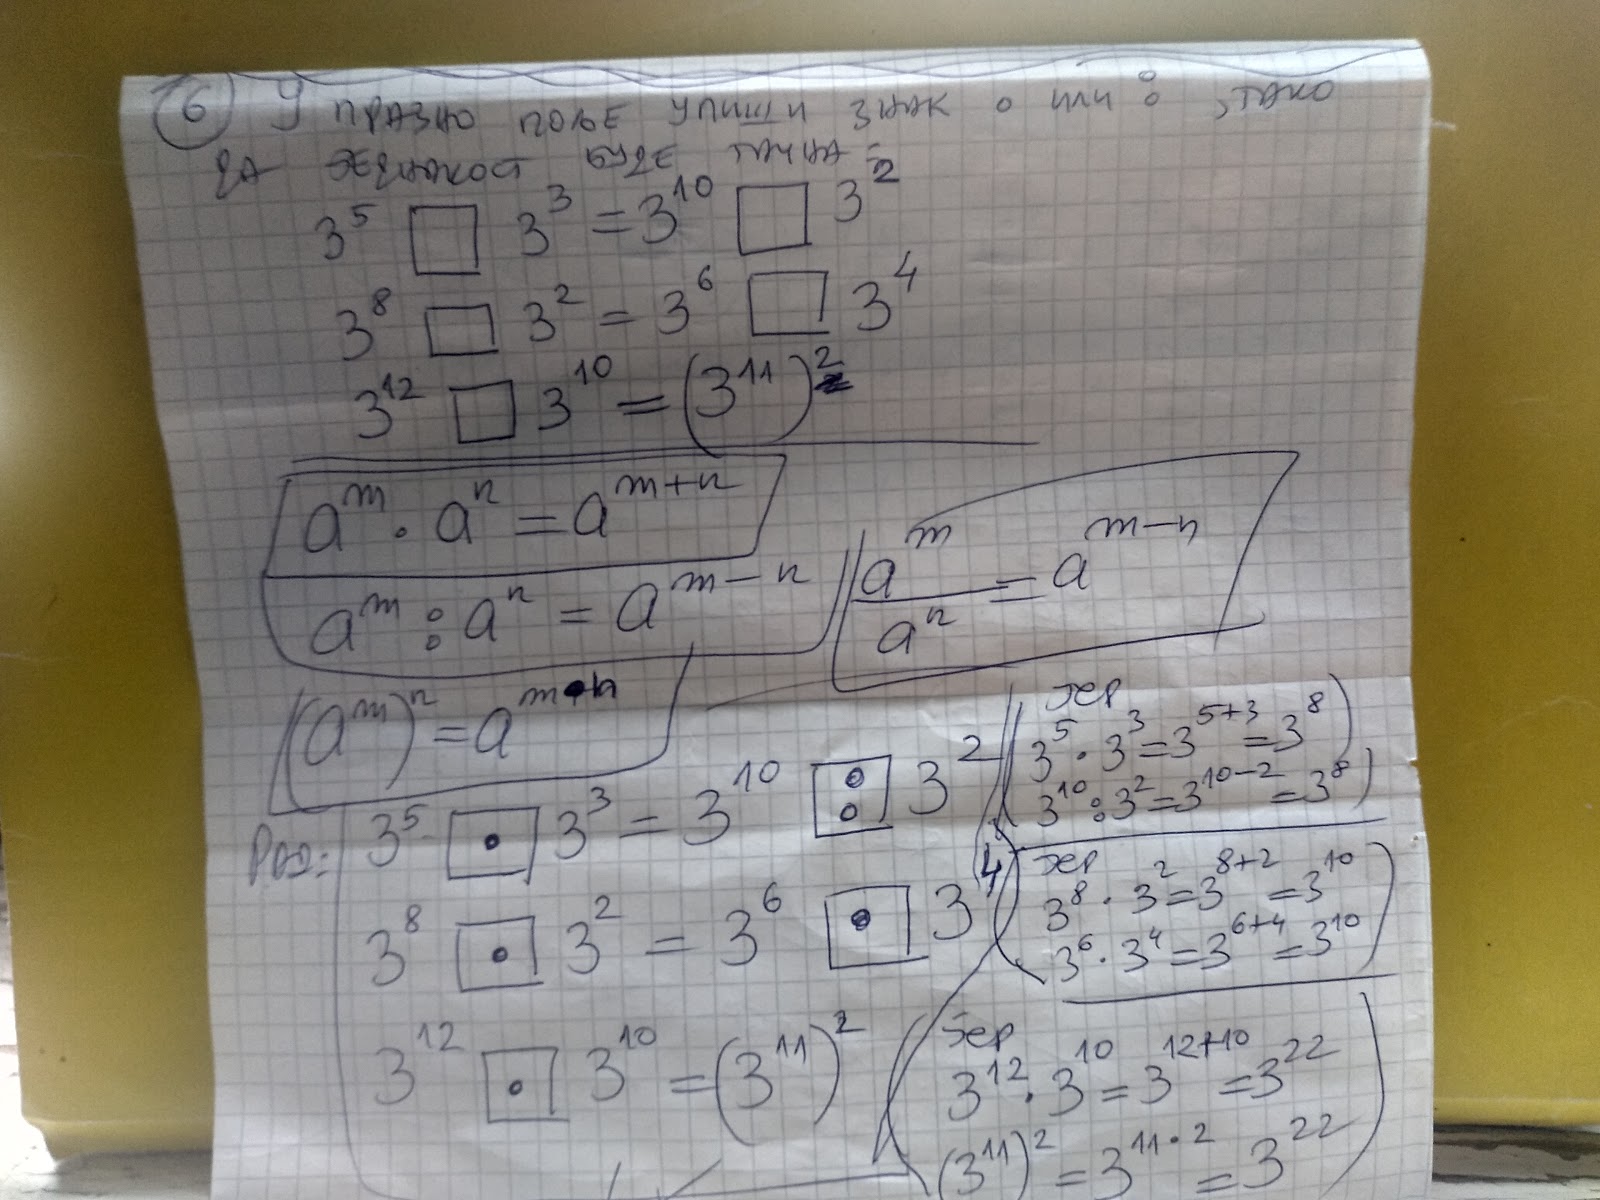 6 У ПРАЗНО ПОЉЕ УПИШИ ЗНАК · ИЛИ : , ТАКО
ДА ЈЕДНАКОСТ БУДЕ ТАЧНА:
3⁵ □ 3³ = 3¹⁰ □ 3²
3⁸ □ 3² = 3⁶ □ 3⁴
3¹² □ 3¹⁰ = (3¹¹)²
aᵐ · aⁿ = aᵐ⁺ⁿ
aᵐ : aⁿ = aᵐ⁻ⁿ
aᵐ/aⁿ = aᵐ⁻ⁿ
(aᵐ)ⁿ = aᵐ·ⁿ
3⁵ · 3³ = 3¹⁰ : 3²
ЈЕР
3⁵ · 3³ = 3⁵⁺³ = 3⁸
3¹⁰ : 3² = 3¹⁰⁻² = 3⁸
3⁸ · 3² = 3⁶ · 3⁴
ЈЕР
3⁸ · 3² = 3⁸⁺² = 3¹⁰
3⁶ · 3⁴ = 3⁶⁺⁴ = 3¹⁰
3¹² · 3¹⁰ = (3¹¹)²
ЈЕР
3¹² · 3¹⁰ = 3¹²⁺¹⁰ = 3²²
(3¹¹)² = 3¹¹·² = 3²²